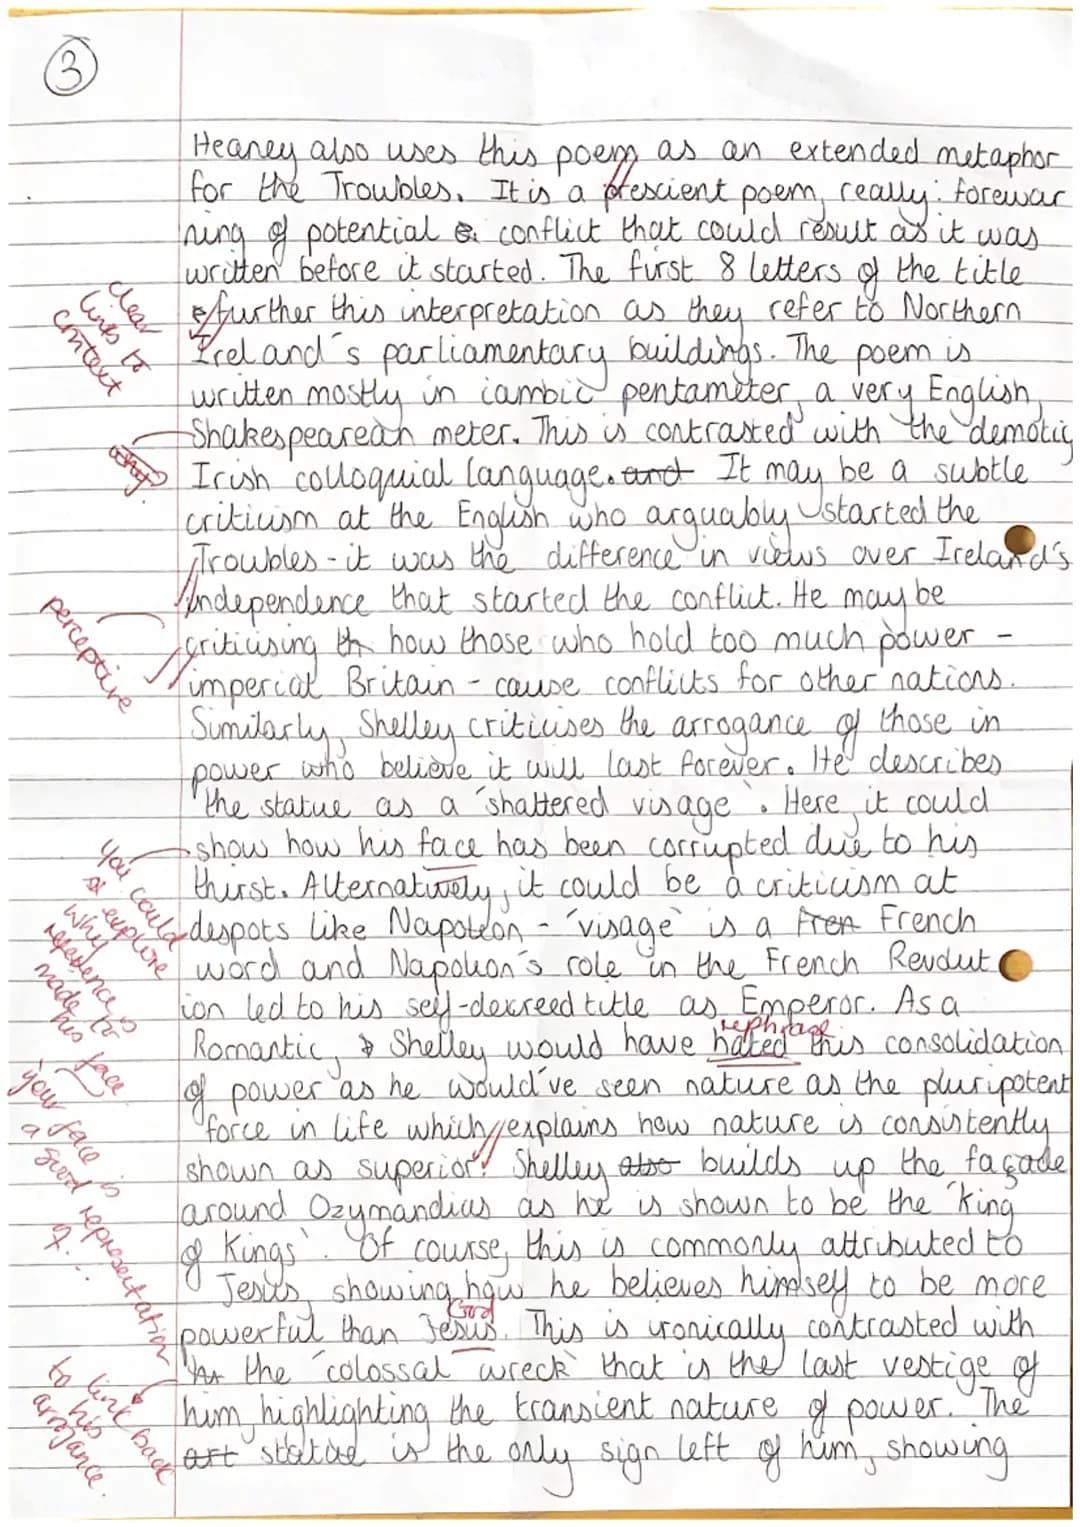 3
Heaney also uses this poem as an extended metaphor
for the Troubles. It is a prescient poem, really: forewar
ning of potential conflict that could result as it was
written before it started. The first 8 letters of the title
further this interpretation as they refer to Northern
Ireland's parliamentary buildings. The poem is
clear
links to
context
written mostly in iambic pentameter, a very English,
Shakespearean meter. This is contrasted with the demotic,
Irish colloquial language. and It may be a subtle
why?
criticism at the English who arguably started the
Troubles - it was the difference in views over Ireland's
independence that started the conflict. He may be
criticising th how those who hold too much power -
imperial Britain - cause conflicts for other nations.
perceptive
Similarly, Shelley criticises the arrogance of those in
power who believe it will last forever. He describes
the statue as a 'shattered visage'. Here, it could
show how his face has been corrupted due to his
thirst. Alternatively, it could be a criticism at
despots like Napoleon - 'visage' is a Fren French
word and Napoleon's role in the French Revolut
ion led to his self-decreed title as Emperor. As a
rephrase
Romantic, Shelley would have hated this consolidation
of power as he would've seen nature as the pluripotent
force in life which explains how nature is consistently
shown as superior. Shelley also builds up the façade
around Ozymandias as he is shown to be the 'King
of Kings'. Of course, this is commonly attributed to
Jesus, showing how he believes himself to be more
God
powerful than Jesus. This is ironically contrasted with
the 'colossal wreck' that is the last vestige of
him, highlighting the transient nature of power. The
art statue is the only sign left of him, showing
You could
explore
why
reference is
made to
his face
'your face is
a good representation
of...
to link back
his
arrogance.